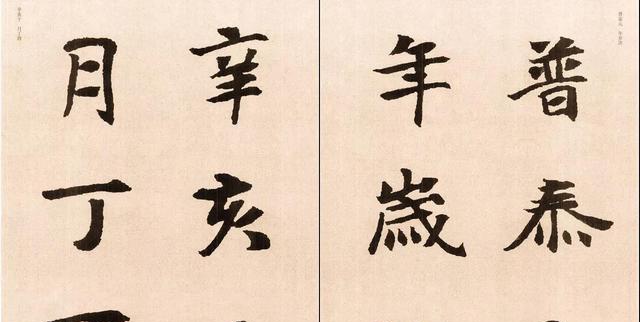 普泰
年歲
辛亥
月丁